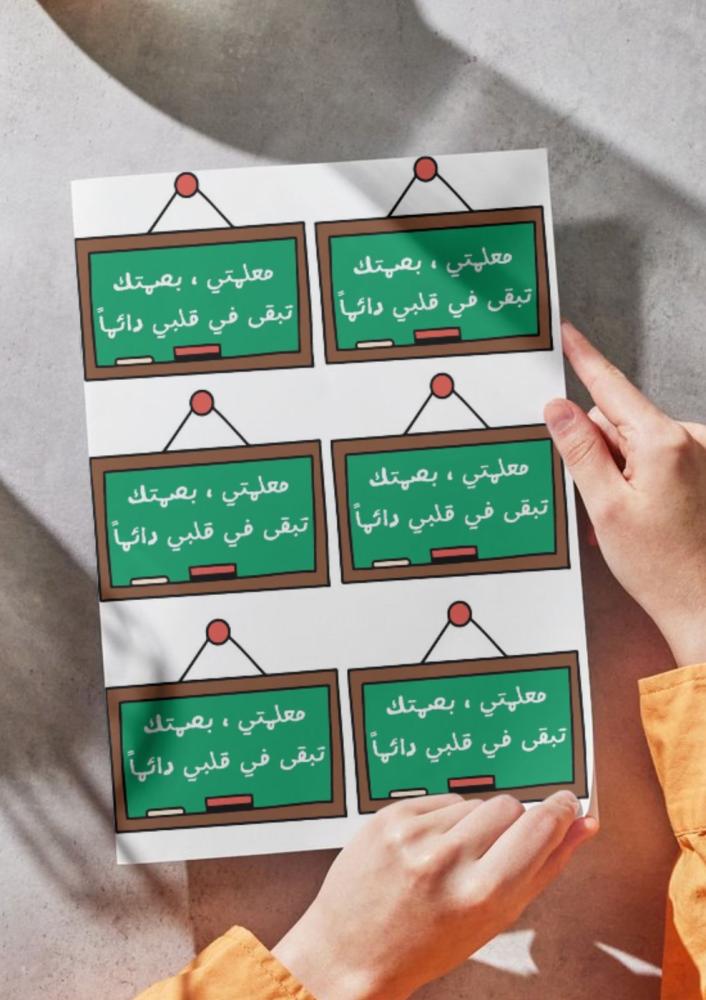 معلمتي ، بصمتك
تبقى في قلبي دائماً
معلمتي ، بصمتك
تبقى في قلبي دائماً
معلمتي ، بصمتك
تبقى في قلبي دائماً
معلمتي ، بصمتك
تبقى في قلبي دائماً
معلمتي ، بصمتك
تبقى في قلبي دائماً
معلمتي ، بصمتك
تبقى في قلبي دائماً